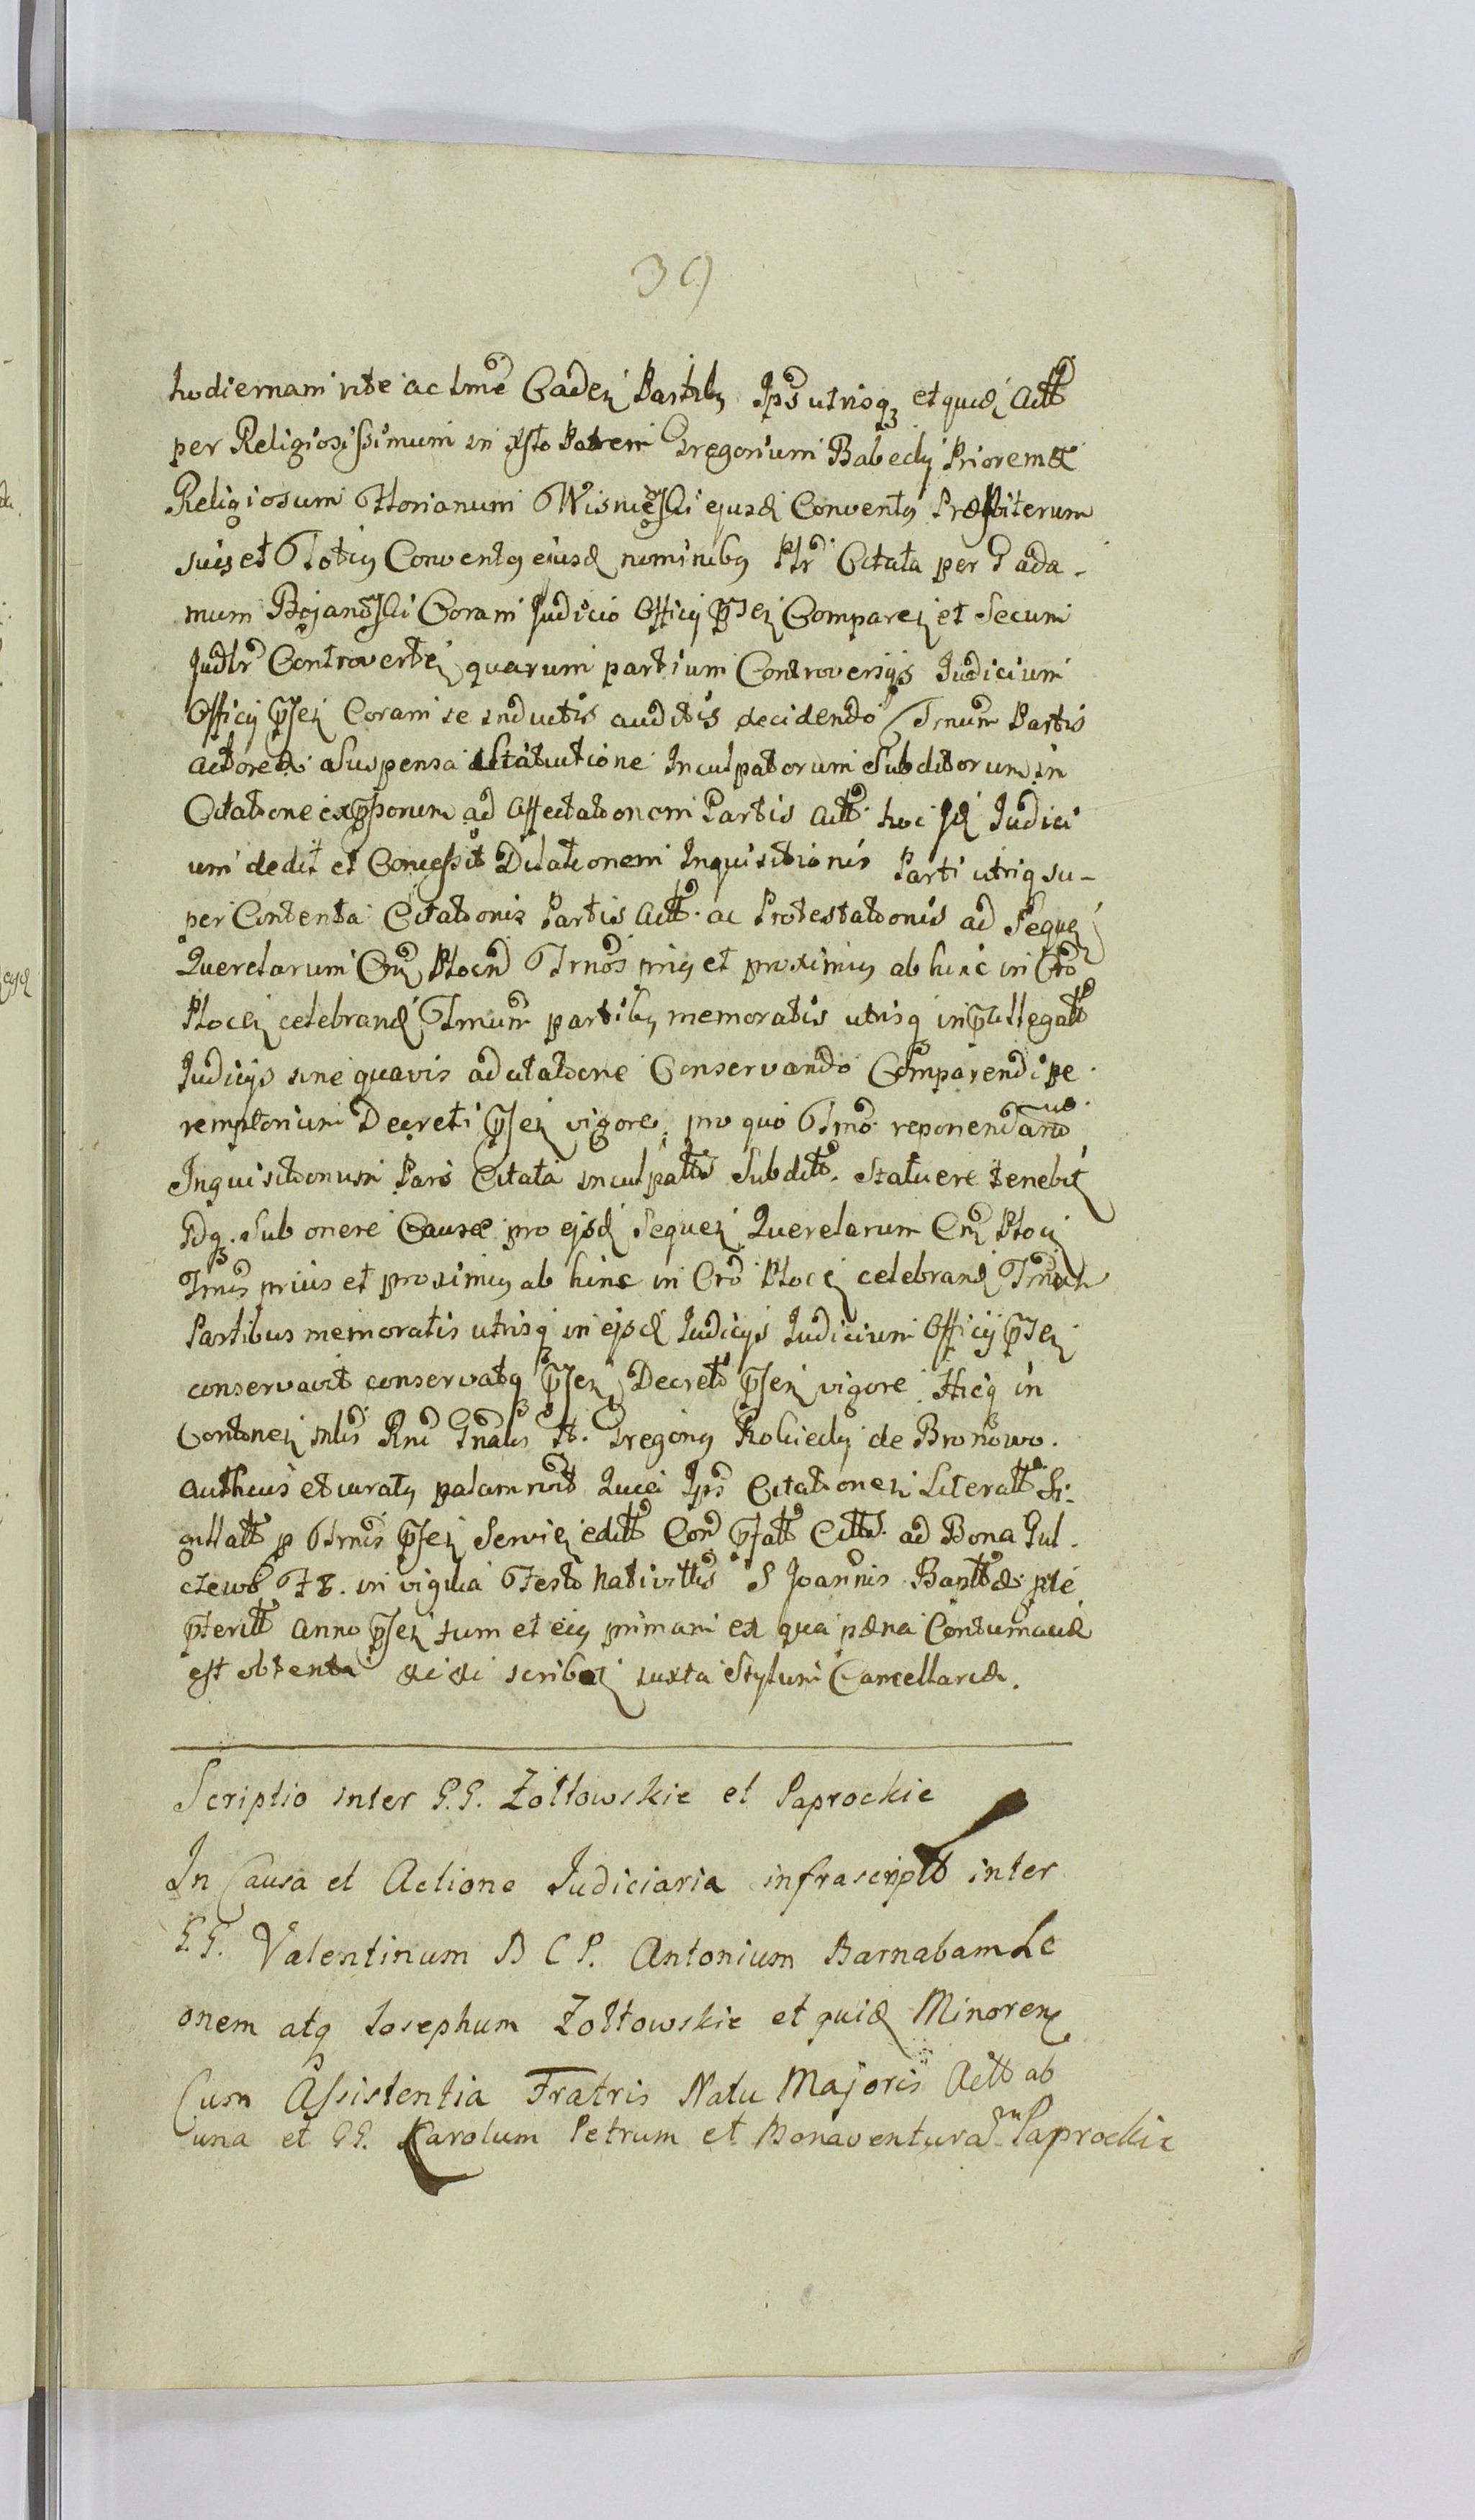 39
hodiernam rite ac Tmē Caden Partibus Ips utrisq et quid Actt
per Religiosissimum in Xsto Patrem Gregorium Babecky Priorem &
Religiosum Florianum Wisniewski ejusd Conventus Præsbiterum
suis et Totius Conventus ejusd nominibus Citata per G Ada-
mum Bojanowski Coram Judicio Officij pnsen Comparen et Secum
Judlr Controverten quarum partium Controversijs Judicium
Officij pnsen Coram se inductis auditis decidendo Trnum Partis
Actoreæ Suspensa Statutione Inculpatorum Subditorum in
Citatione expssorum ad Affectationem Partis Actt. hoc id Judici
um dedit et Concessit Dilationem Inquisitionis Parti utriq su-
per Contenta Citationis Partis Actt. ac Protestationis ad Sequen
Querelarum Cru Plocen Trnos prius et proximius ab hinc in Cro
Plocen celebrand Trnum partibus memoratis utrisq in pallegatt
Judicijs sine quavis adcitatione Conservando Comparendi pe
remptorium Decreti pnsen vigore, pro quo Trno reponendarum
Inquisitionum Pars Citata inculpattos Subditt. Statuere tenebit
Idq. Sub onere Causæ pro ejsd Sequen Querelarum Cru Plocen
Trnis prius et proximius ab hinc in Cro Plocen celebrand Trnum
Partibus memoratis utrisq in ejsd Judicijs Judicium Officij pnsen
conservavit conservatq pnsen Decreto pnsen vigore. Hicq in
Contonen Mlis Rni Gnalis H. Gregorius Rokicky de Bronowo.
authcus et juratus palam rvit Quia Ips Citationem Literatt Si-
gillatt p Trnis pnsen Servien editt Con pfatt Citt. ad Bona Gul-
czewo F 8. in vigilia Festi Nativittis S Joannis Baptt &
pterittt Anno pnsen tum et ejus primam ex qua pæna Contumaciæ
est obtenta &c &c scriben juxta Stylum Cancellariæ.
Scriptio inter G.G. Żołtowskie et Paprockie
In Causa et Actione Judiciaria infrascriptt inter
G.G. Valentinum B C P. Antonium Barnabam Le
onem atq Josephum Żołtowskie et quid Minoren
Cum Assistentia Fratris Natu Majoris Actt ab
una et GG. Carolum Petrum et Bonaventuram Paprockie